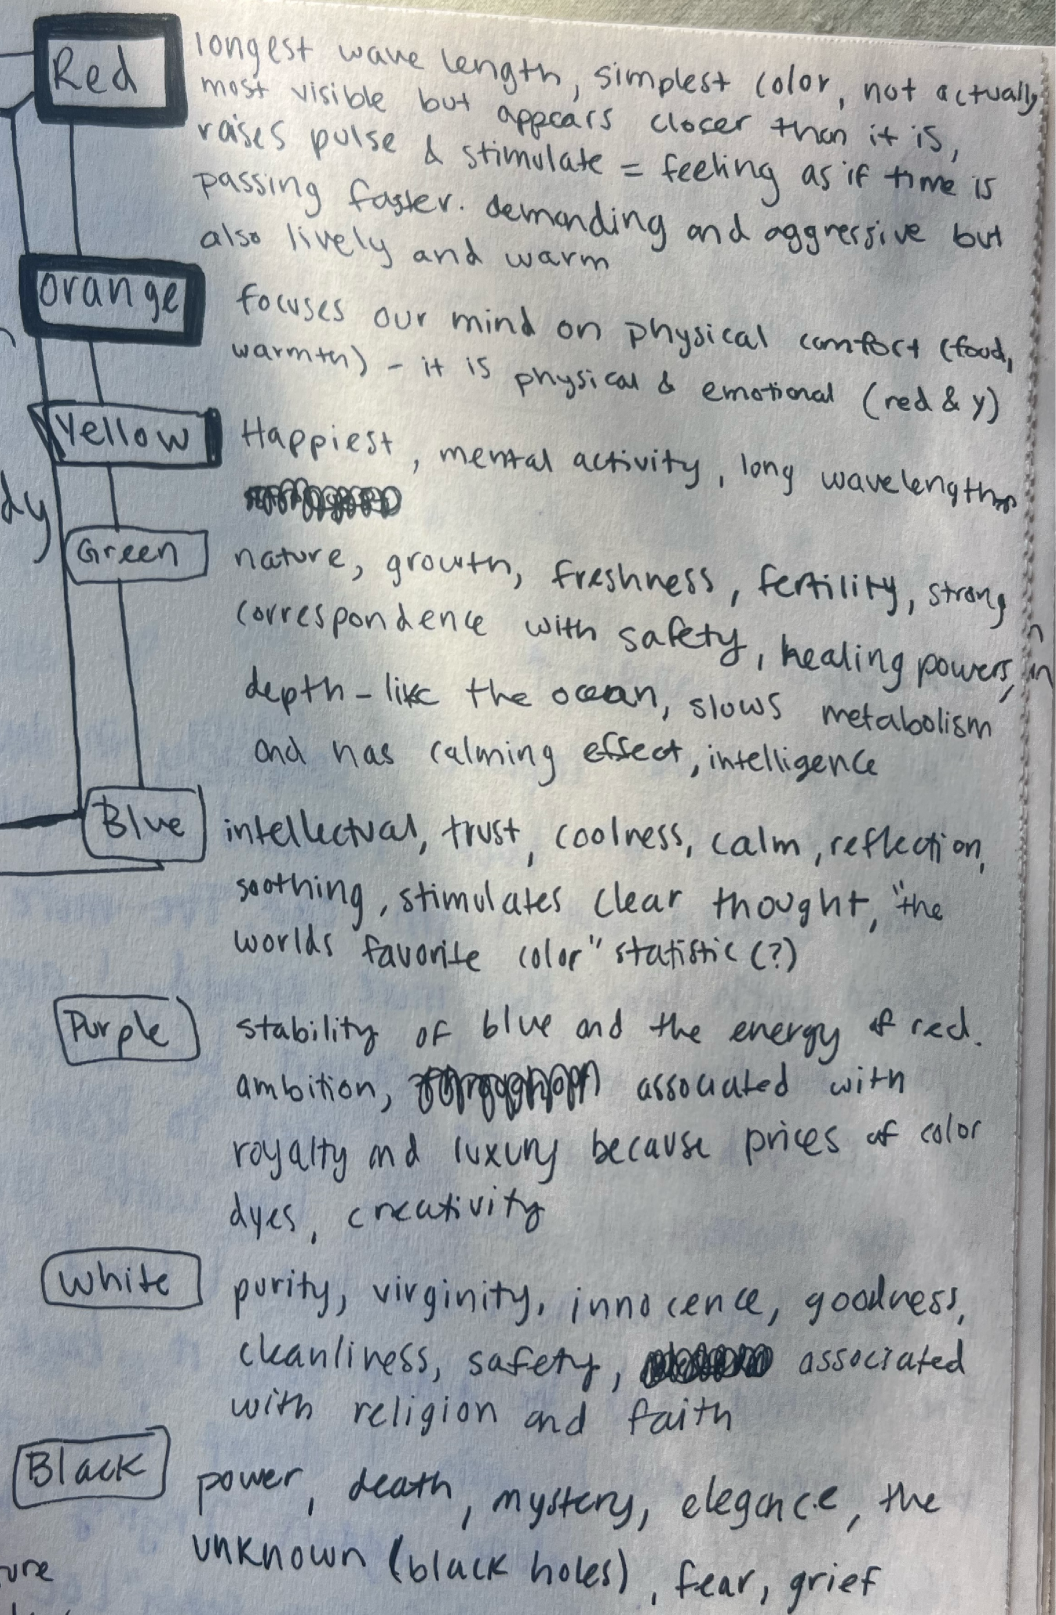 Red
longest wave length, simplest color, not actually
most visible but appears closer than it is,
raises pulse & stimulate = feeling as if time is
passing faster. demanding and aggressive but
also lively and warm
orange
focuses our mind on physical comfort (food,
warmth) - it is physical & emotional (red & y)
Yellow
Happiest, mental activity, long wavelength
dy
Green
nature, growth, freshness, fertility, strong
correspondence with safety, healing powers, in
depth - like the ocean, slows metabolism
and has calming effect, intelligence
Blue
intellectual, trust, coolness, calm, reflection,
soothing, stimulates clear thought, "the
worlds favorite color" statistic (?)
Purple
stability of blue and the energy of red.
ambition, associated with
royalty and luxury because prices of color
dyes, creativity
White
purity, virginity, innocence, goodness,
cleanliness, safety, associated
with religion and faith
Black
power, death, mystery, elegance, the
unknown (black holes), fear, grief
ure